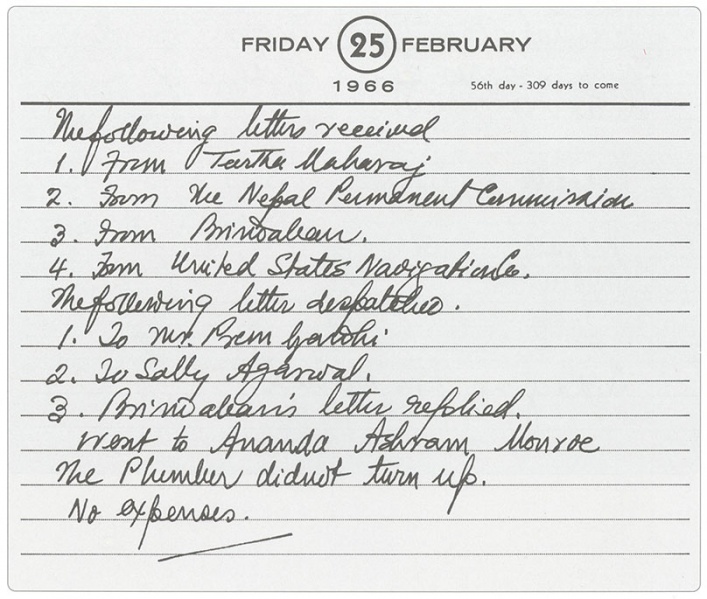 FRIDAY 25 FEBRUARY
1966
56th day - 309 days to come
The following letters received
1. From Tirtha Maharaj
2. From the Nepal Permanent Commission
3. From Brindaban.
4. From United States Navigation Co.
The following letter despatched.
1. To Mr. Prem
2. To Sally Agarwal.
3. Brindaban's letter replied.
Went to Ananda Ashram Monroe
The Plumber didnot turn up.
No expenses.